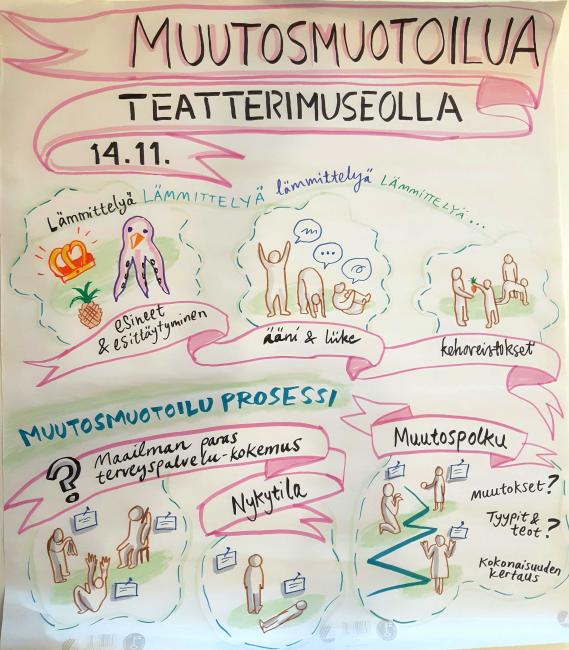 MUUTOSMUOTOILUA
TEATTERIMUSEOLLA
14.11.
Lämmittelyä LÄMMITTELYÄ lämmittelyä LÄMMITTELYÄ...
esineet
& esittäytyminen
ääni & liike
kehoveistokset
MUUTOSMUOTOILU PROSESSI
? Maailman paras
terveyspalvelu-kokemus
Nykytila
Muutospolku
muutokset?
Tyypit &
teot?
Kokonaisuuden
kertaus